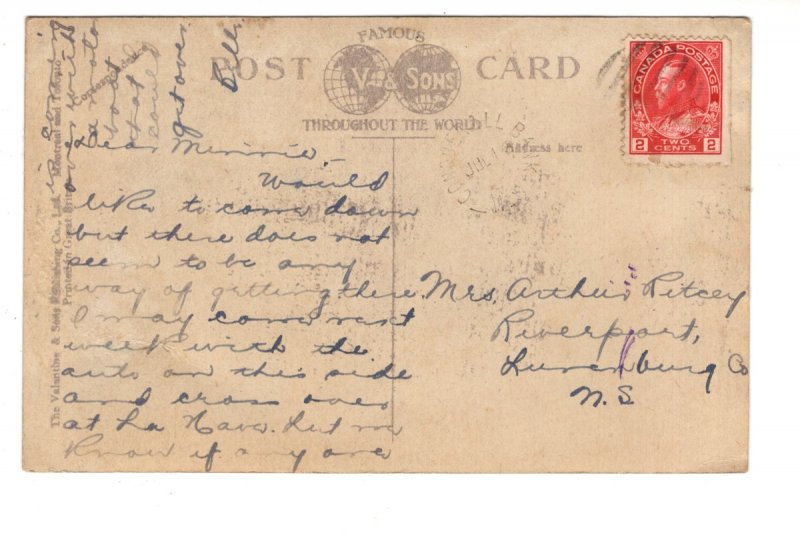 FAMOUS
POST CARD
V & SONS
THROUGHOUT THE WORLD
Correspondence
Address here
CANADA POSTAGE
2 TWO CENTS 2
JUL
The Valentine & Sons Publishing Co., Ltd., Montreal and Toronto
Printed in Great Britain
Dear Minnie,
Would
like to come down
but there does not
seem to be any
way of getting there
I may come next
week with the
auto on this side
and cross over
at La Have. Let me
know if any one
is coming
over with
a moto
boat
that
could
get over.
Bill
Mrs. Arthur Ritcey
Riverport,
Lunenburg Co
N.S.